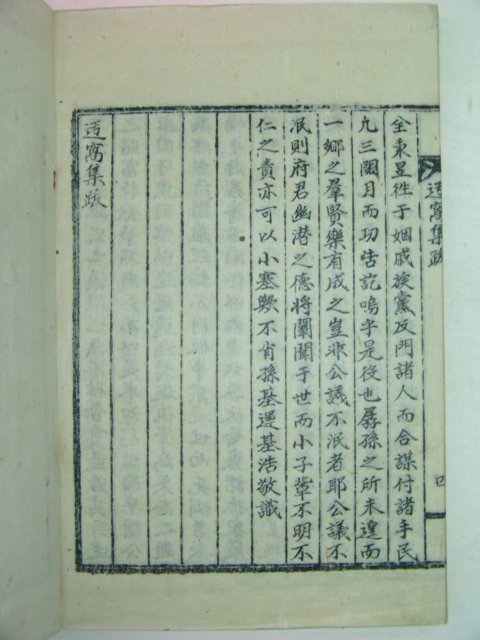 迃窩集跋
四
全秉昱徃于姻戚族黨及門諸人而合謀付諸手民
凡三閱月而功告訖嗚乎是役也孱孫之所未遑而
一鄕之羣賢樂有成之豈非公議不泯者耶公議不
泯則府君幽潜之德將闡聞于世而小子輩不明不
仁之責亦可以小塞歟不肖孫基運基浩敬識
迃窩集跋